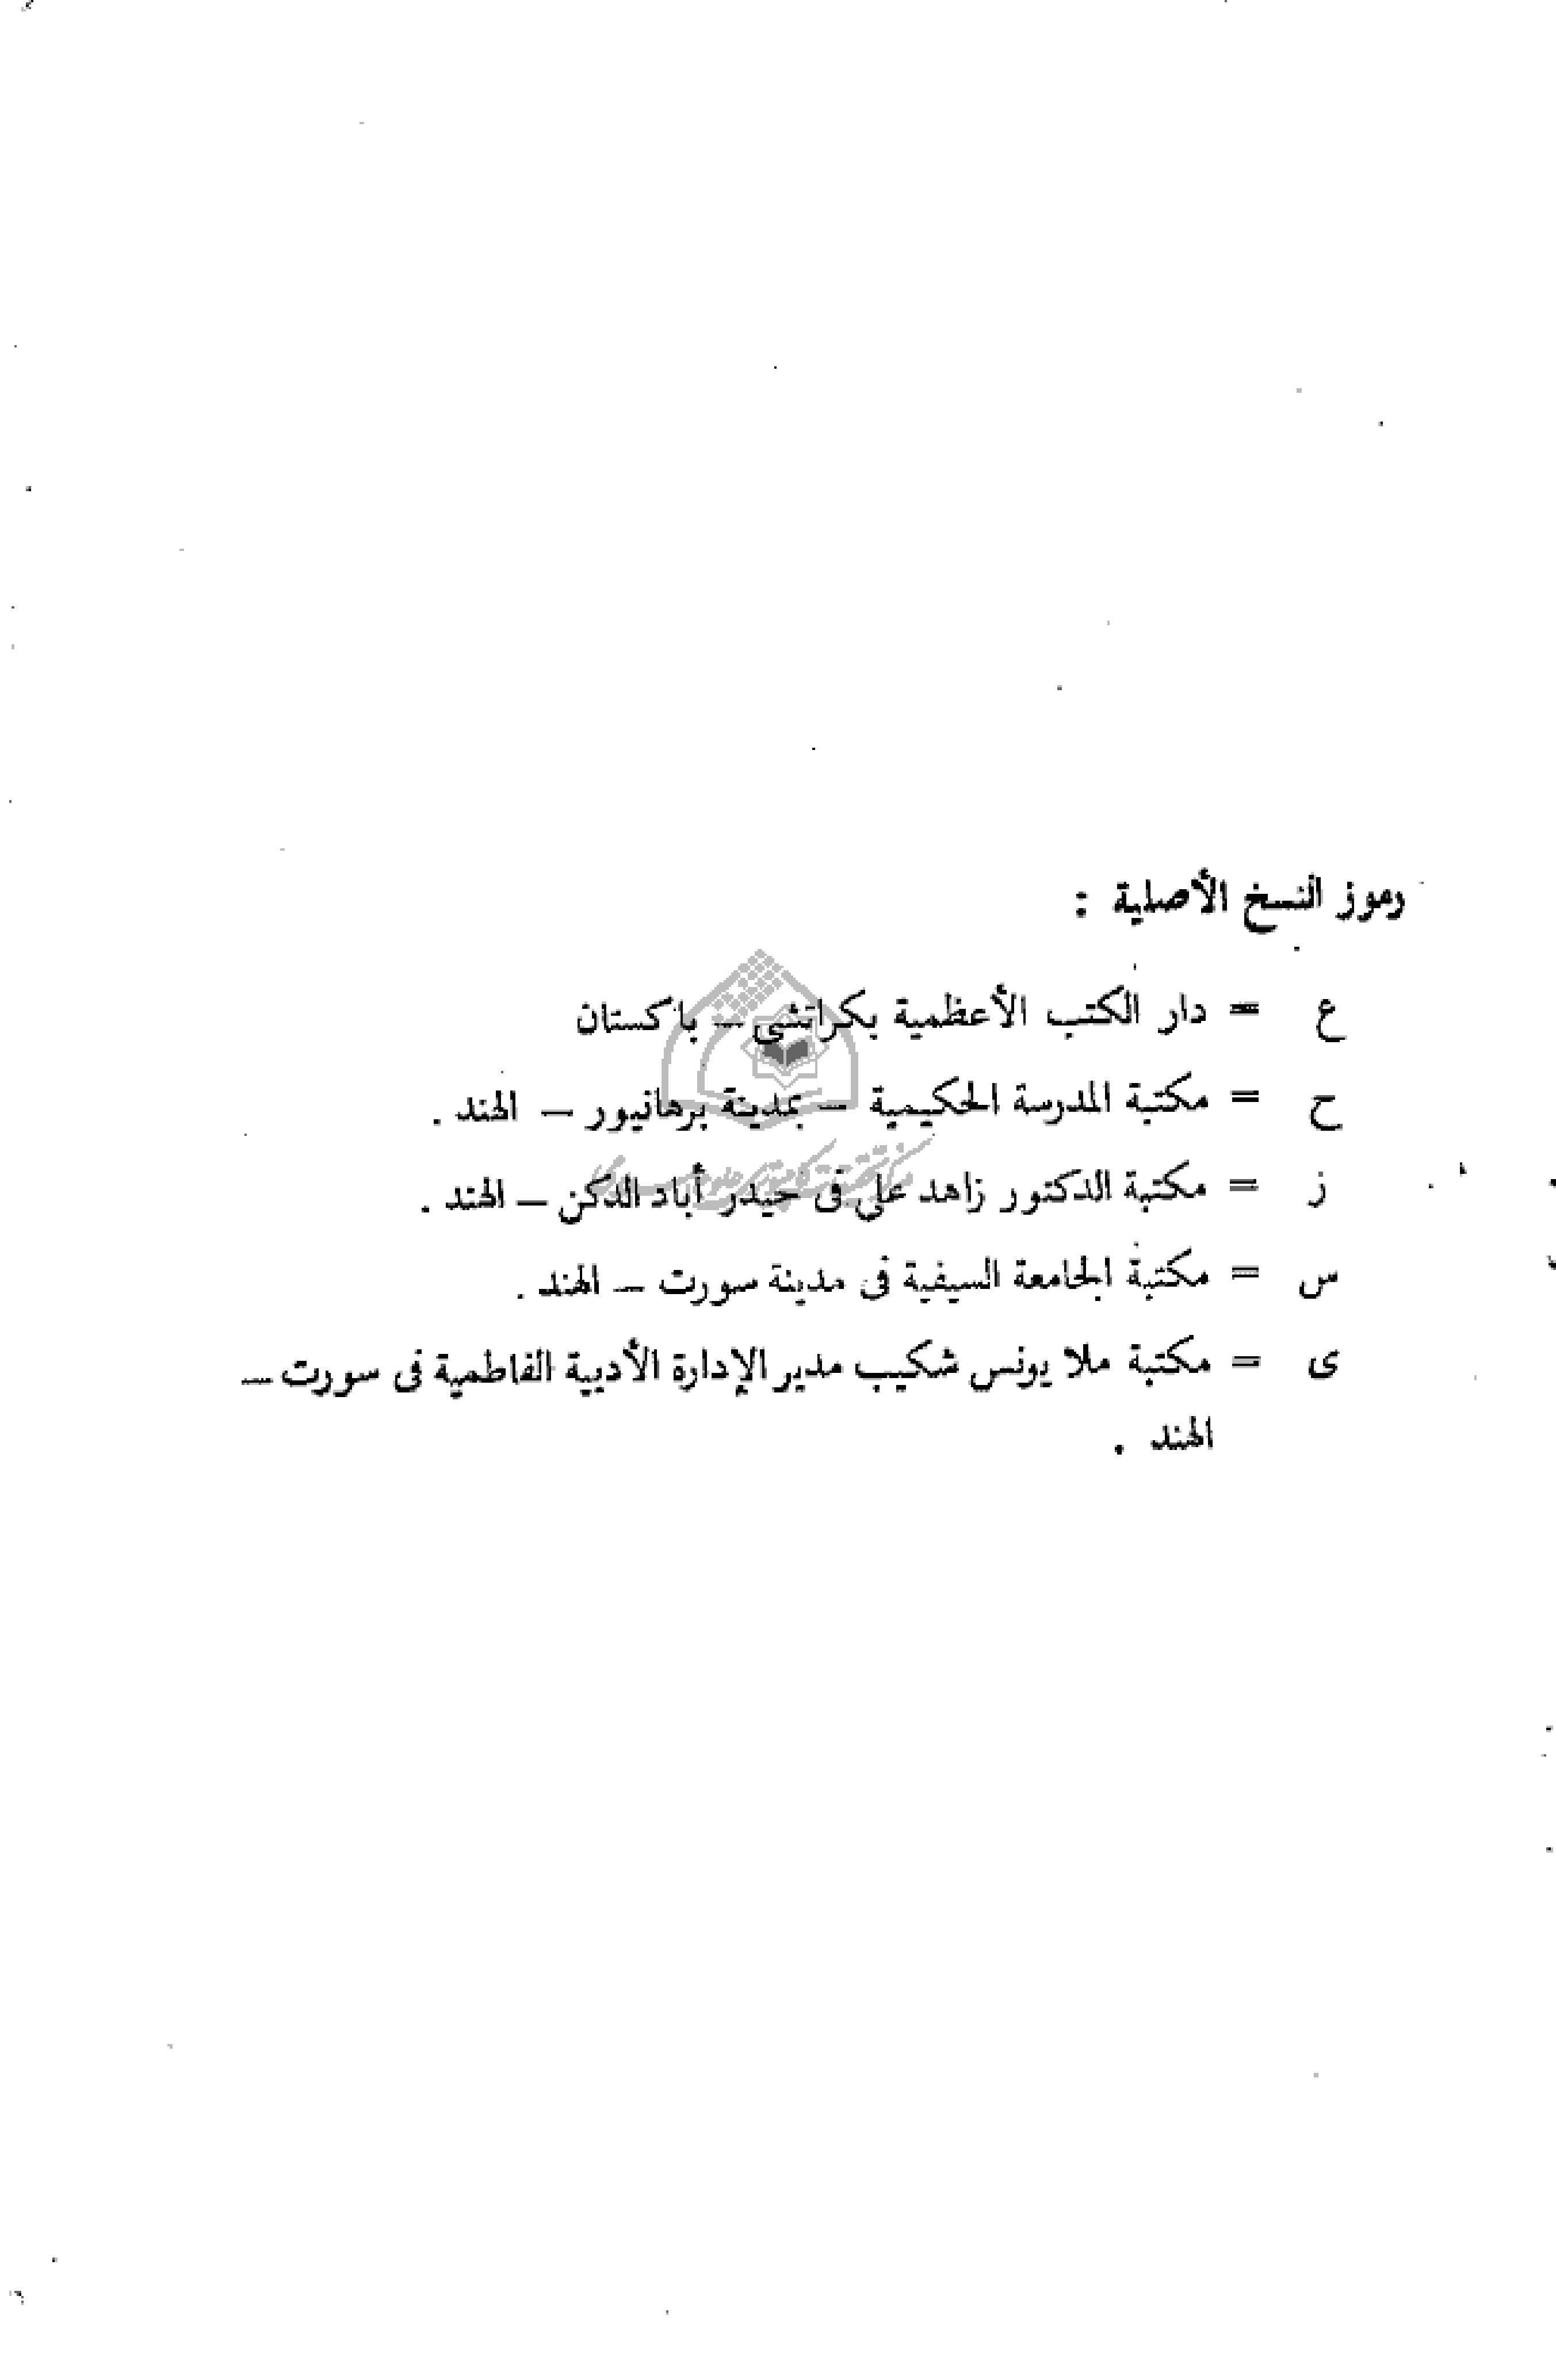 رموز النسخ الأصلية :
ع = دار الكتب الأعظمية بكراتشى – باكستان
ح = مكتبة المدرسة الحكيمية – بمدينة برهانپور – الهند .
ز = مكتبة الدكتور زاهد على فى حيدر أباد الدكن – الهند .
س = مكتبة الجامعة السيفية فى مدينة سورت – الهند .
ى = مكتبة ملا يونس شكيب مدير الإدارة الأدبية الفاطمية فى سورت –
الهند .